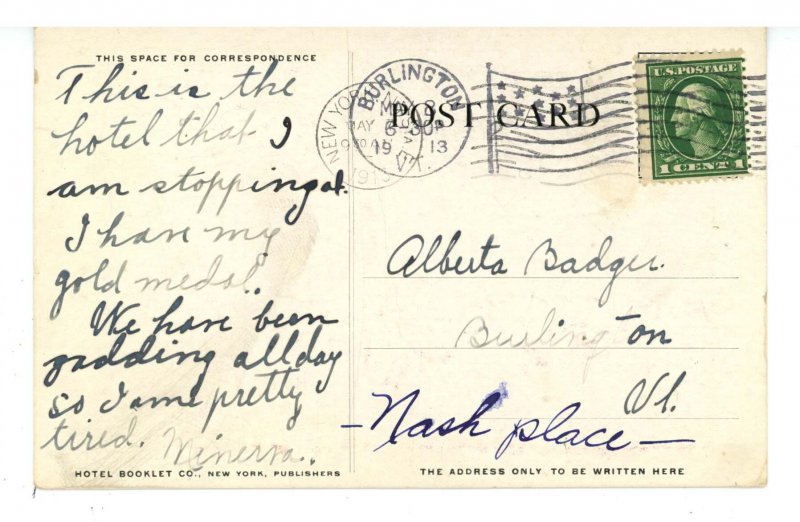 THIS SPACE FOR CORRESPONDENCE
This is the
hotel that I
am stopping at.
I have my
gold medal.
We have been
gadding all day
so I am pretty
tired. Minerva.
HOTEL BOOKLET CO., NEW YORK, PUBLISHERS
POST CARD
NEW YORK
MAY
1913
BURLINGTON
MAY 8
6-30P
19 13
VT.
U.S. POSTAGE
1 CENT 1
Alberta Badger.
Burlington
Vt.
- Nash place -
THE ADDRESS ONLY TO BE WRITTEN HERE